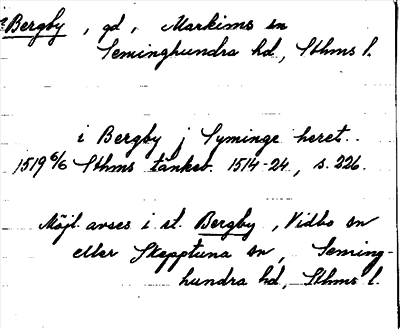 ? Bergby, gd, Markims sn
Seminghundra hd, Sthms l.
i Bergby j Syminge heret..
1519 6/6 Sthms tänkeb. 1514-24, s. 226.
Möjl. avses i st. Bergby, Vidbo sn
eller Skepptuna sn, Seming-
hundra hd, Sthms l.